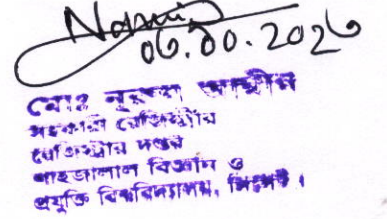 ০৩.১০.২০২৩
মোঃ নূরুল আমীন
সহকারী রেজিস্ট্রার
রেজিস্ট্রার দপ্তর
শাহজালাল বিজ্ঞান ও
প্রযুক্তি বিশ্ববিদ্যালয়, সিলেট।